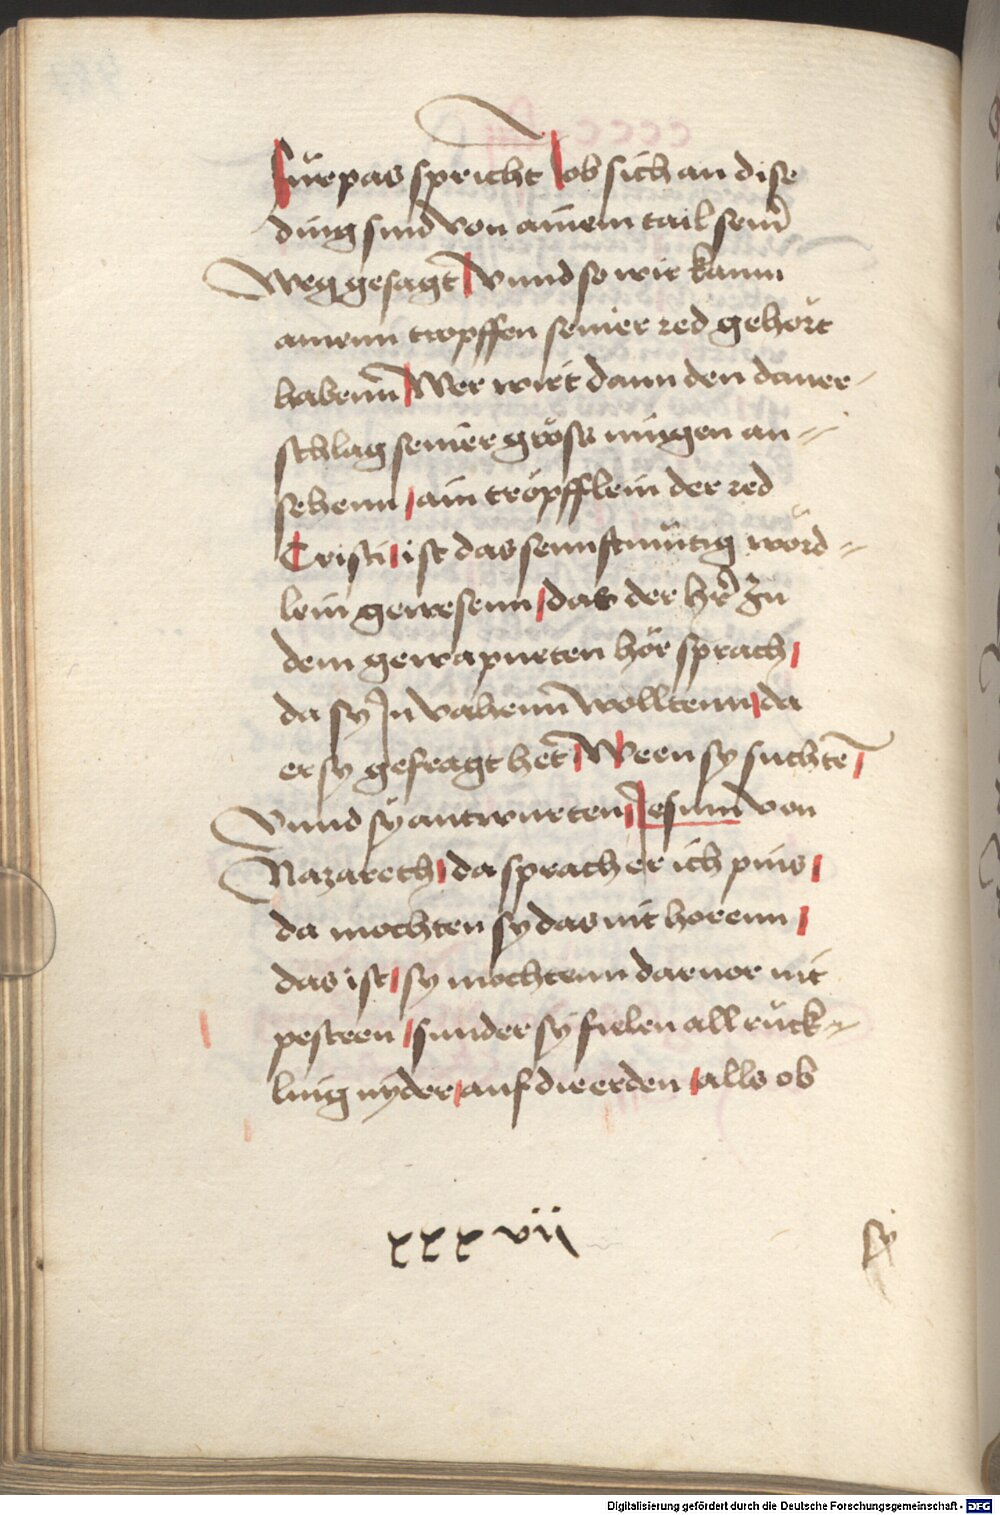 Fürpas spricht / ob sich an dise
ding sind von ainem tail seinr̄
weg gesagt / vnnd so wir kaum
ainenn tropffen seiner red gehört
habenn̄ / Wer wirt dann den doner-
schlag seiner gröss mügen an=
sehenn / ain tröpfflein der red
Cristi / ist das sennftmütig wörd=
lein gewesenn / das der hr̄ zu
dem gewapneten hör sprach /
da sy Jn vahenn̄ wolltenn / da
er sy gefragt het / Ween sy suchtē /
Vnnd sÿ antwurten̄ / Jesum von
Nazareth / da sprach er ich pins /
da mochten sy das nit horenn /
das ist / sy mochtenn daruor nit
pesteen / sunder sÿ fielen all rück=
ling nÿder / auf die erden / alls ob
xxxvii
sy
Digitalisierung gefördert durch die Deutsche Forschungsgemeinschaft - DFG